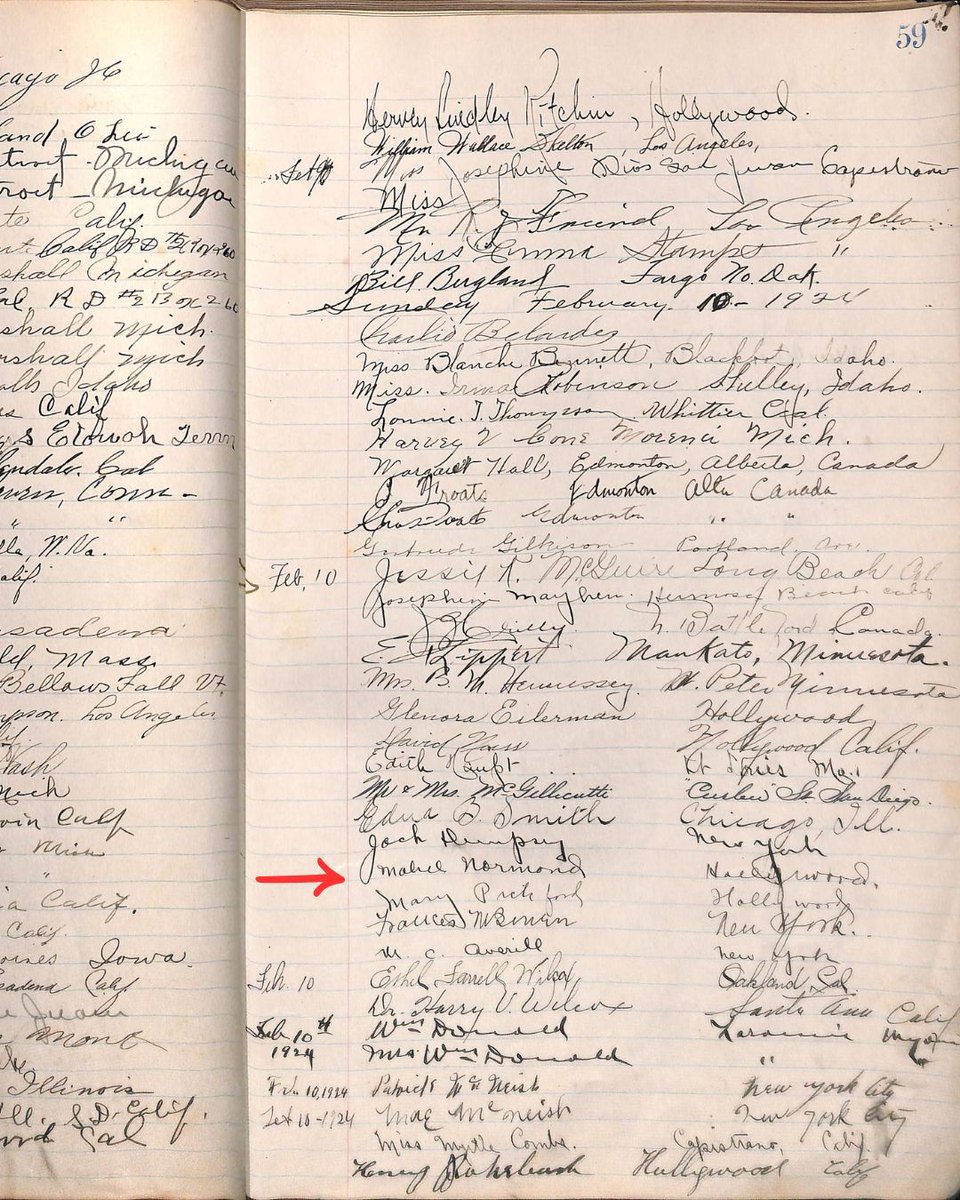 cago
land
troit - Michigan
troit - Michigan
Calif.
Calif R D #2
shall Michigan
Cal, R D #2 Box 2
shall Mich.
rshall Mich
Idaho
Calif
Etowah Tenn
ndale. Cal
ven, Conn -
" "
W. Va.
alif.
sadena
ld, Mass.
Bellows Fall Vt.
mpson. Los Angeles
Wash
Mich
Calif
Mich
"
ia Calif.
Calif.
oines Iowa.
sadena Calif
Juan
Mont
Illinois
Ill. S.D. Calif.
Cal
59
Hervey Lindley Kitchin, Hollywood.
William Wallace Shelton, Los Angeles,
Miss Josephine Rios San Juan Capistrano
Miss
Mr R. J. Los Angeles
Miss Emma Stamps "
Bill Bugland Fargo No. Dak.
Sunday February 10 - 1924
Charlie Belardes
Miss Blanche Bennett, Blackfoot, Idaho.
Miss. Irma Robinson Shelley, Idaho.
Lonnie T. Thompson Whittier Cal.
Harvey V Cone Morenci Mich.
Margaret Hall, Edmonton, Alberta, Canada
J Troats Edmonton Alta Canada
Edmonton " "
Gertrude Gilkison Portland, Ore.
Feb, 10 Jessie A. McGuire Long Beach Cal
Josephine Mayhew. Hermosa Beach Calif
Reilly. N. Battleford. Canada.
E. Lippert Mankato, Minnesota.
Mrs. B. M. Hennessey. St. Peter Minnesota
Glenora Eilerman Hollywood
David Hollywood Calif.
Edith St Louis Mo.
Mr & Mrs. McGillicutti "Curlew" St. San Diego.
Edna B. Smith Chicago, Ill.
Jack Dempsey New York
Mabel Normand Hollywood.
Mary Pickford Hollywood
Frances New York.
M. C. Averill New York
Feb. 10 Ethel Farrell Wilcox Oakland, Cal.
Dr. Harry V. Wilcox Santa Ana Calif
Feb 10th Wm Donald Laramie Wyo
1924 Mrs Wm Donald "
Feb 10, 1924 Patrick McNeish New York City
Feb 10 - 1924 Mae McNeish New York City
Miss Myrtle Combs. Capistrano, Calif.
Henry Hollywood Calif